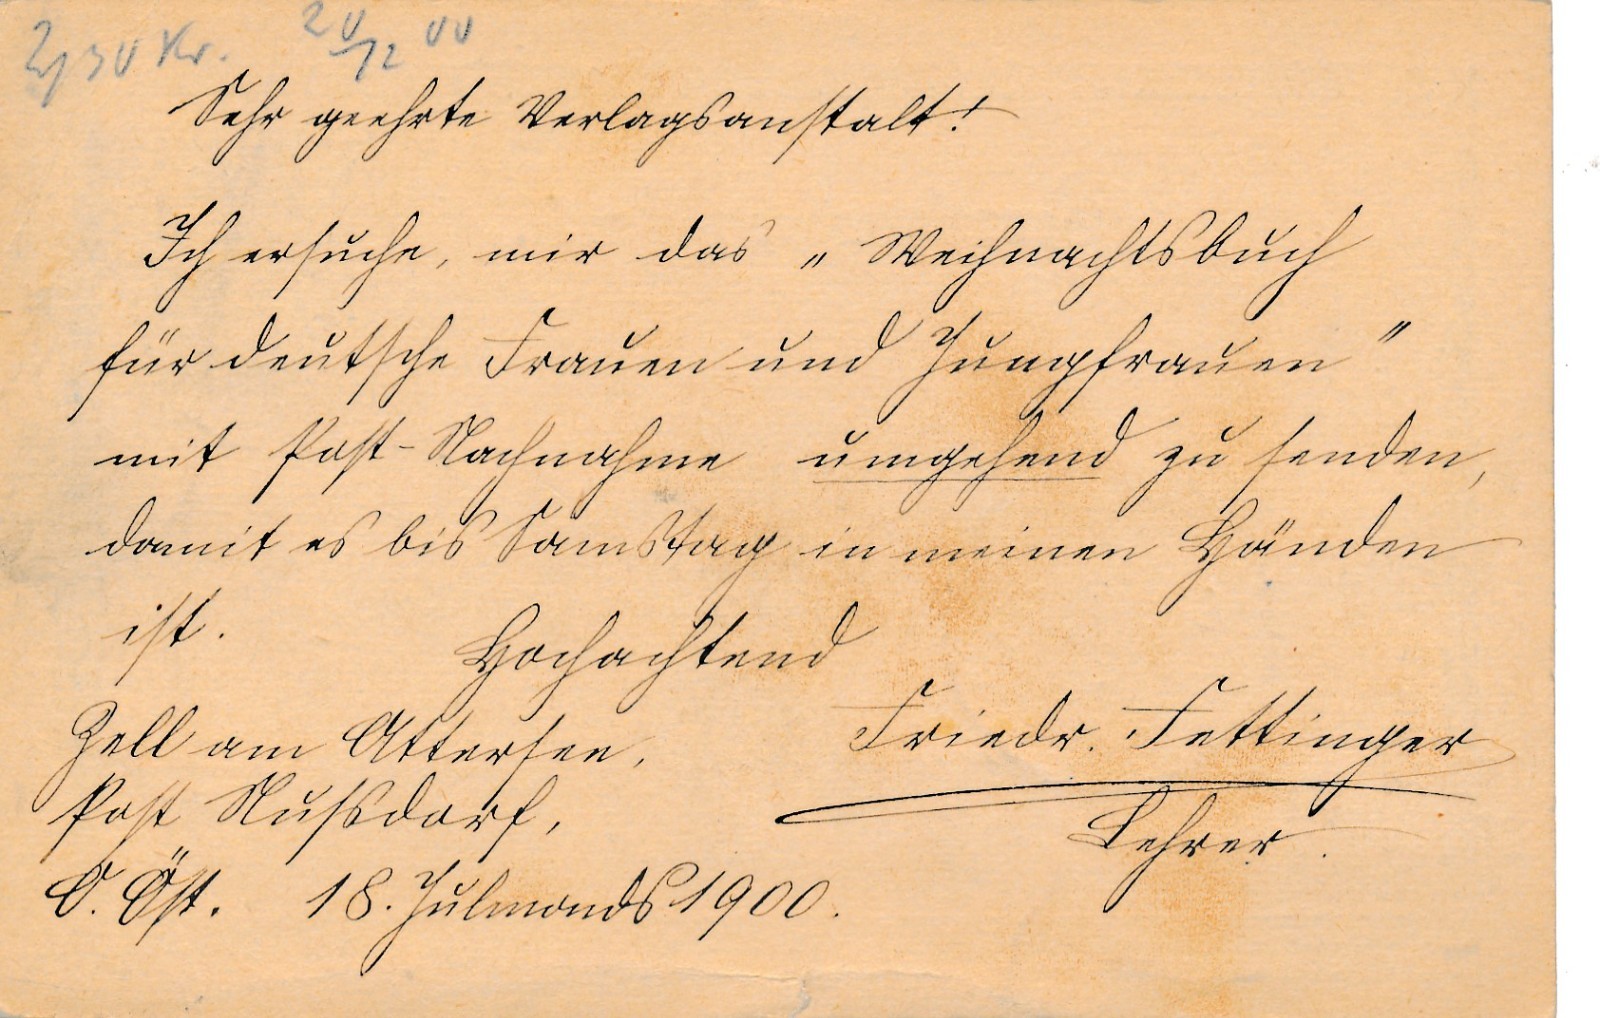 2,30 Kr. 20/12 00
Sehr geehrte Verlagsanstalt!
Ich ersuche, mir das „Weihnachtsbuch
für deutsche Frauen und Jungfrauen"
mit Post-Nachnahme umgehend zu senden,
damit es bis Samstag in meinen Händen
ist.
Hochachtend
Zell am Attersee,
Friedr. Fettinger
Post Nußdorf,
Lehrer.
O. Öst. 18. Julmonds 1900.